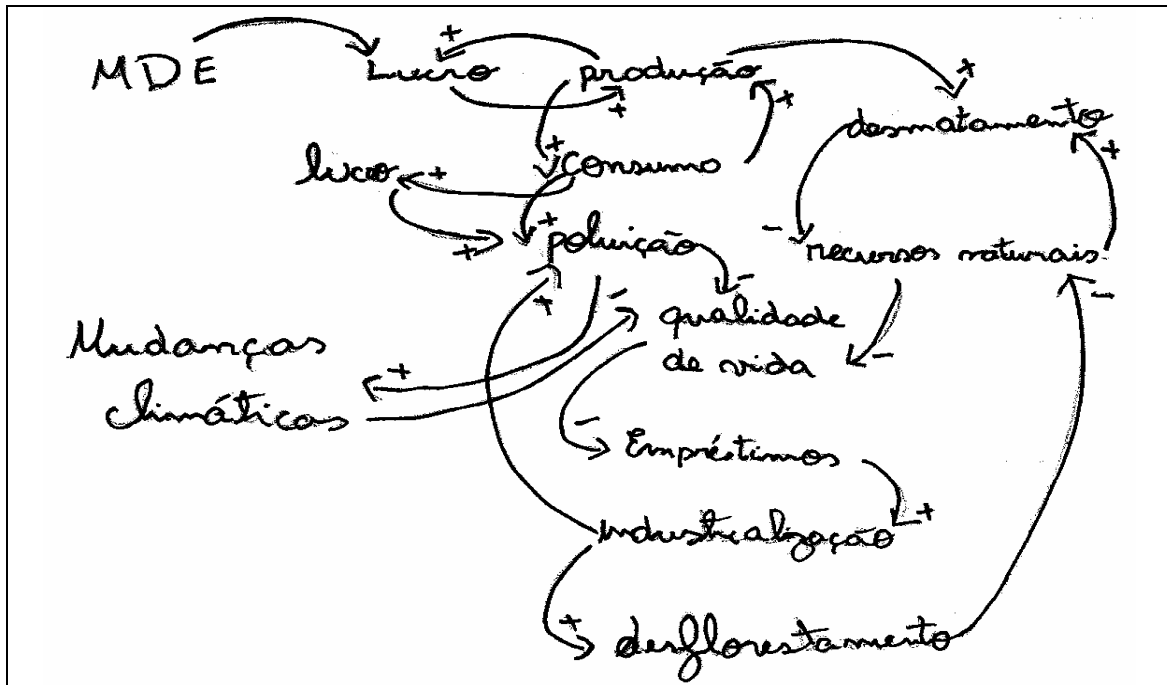 MDE Lucro produção
desmatamento
lucro consumo
poluição recursos naturais
Mudanças qualidade
climáticas de vida
Empréstimos
industrialização
desflorestamento